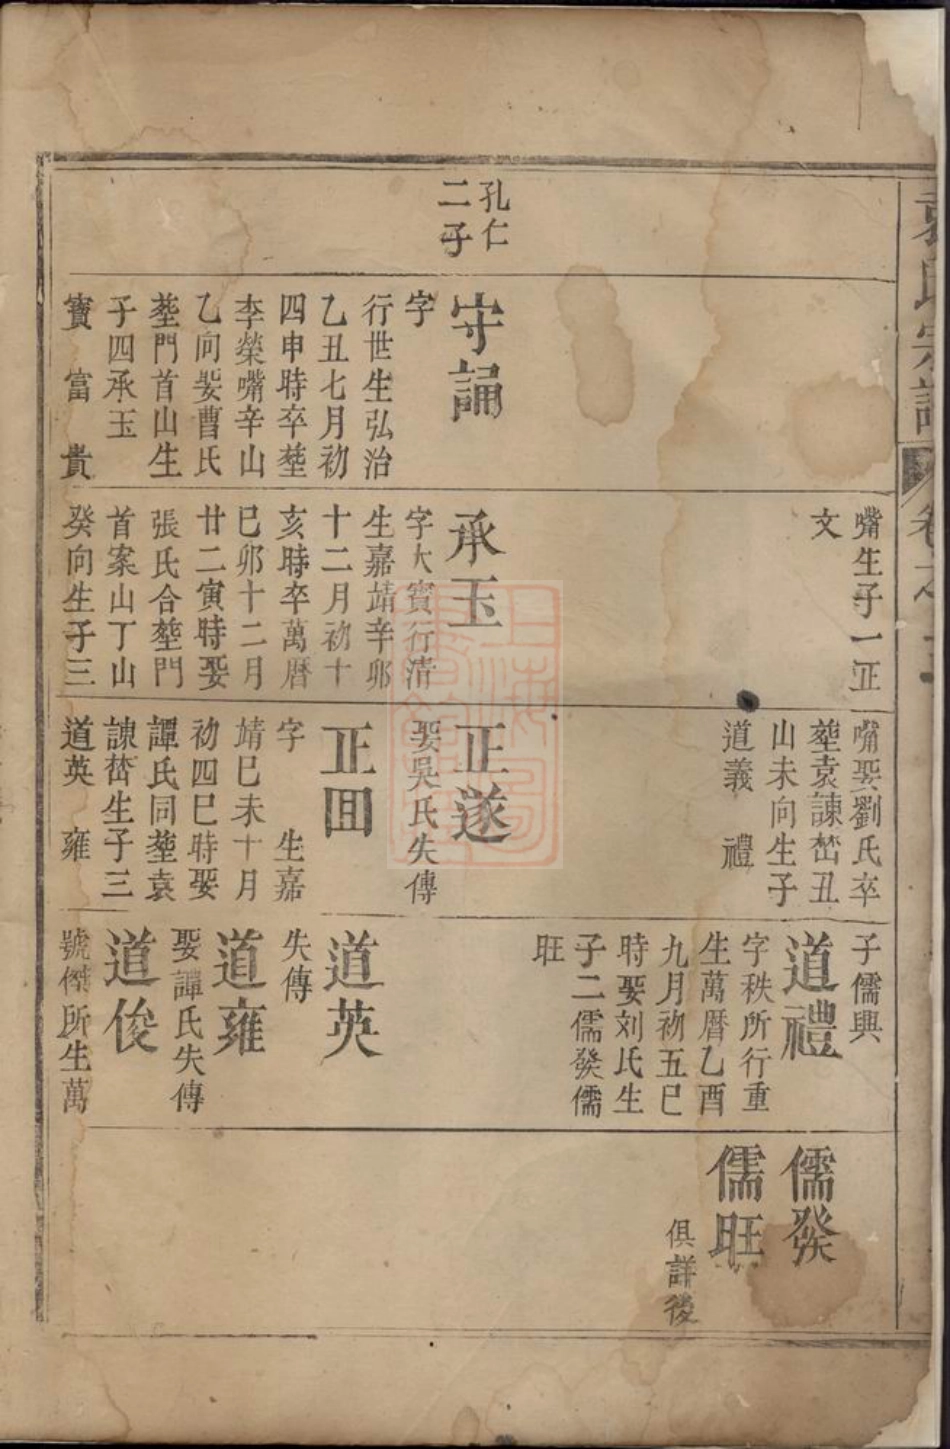 袁氏宗譜
卷之
孔仁
二子
守誦
字
行世生弘治
乙丑七月初
四申時卒塟
李榮嘴辛山
乙向娶曹氏
塟門首山生
子四承玉
寶富貴
嘴生子一正
文
承玉
字大賓行清
生嘉靖辛卯
十二月初十
亥時卒萬曆
巳卯十二月
廿二寅時娶
張氏合塟門
首案山丁山
癸向生子三
嘴娶劉氏卒
塟袁諫嵆丑
山未向生子
道義禮
正遂
娶吳氏失傳
正囬
字生嘉
靖巳未十月
初四巳時娶
譚氏同塟袁
諫嵆生子三
道英雍
子儒興
道禮
字秩所行重
生萬曆乙酉
九月初五巳
時娶刘氏生
子二儒發儒
旺
道英
失傳
道雍
娶譚氏失傳
道俊
號傑所生萬
儒發
儒旺
俱詳後